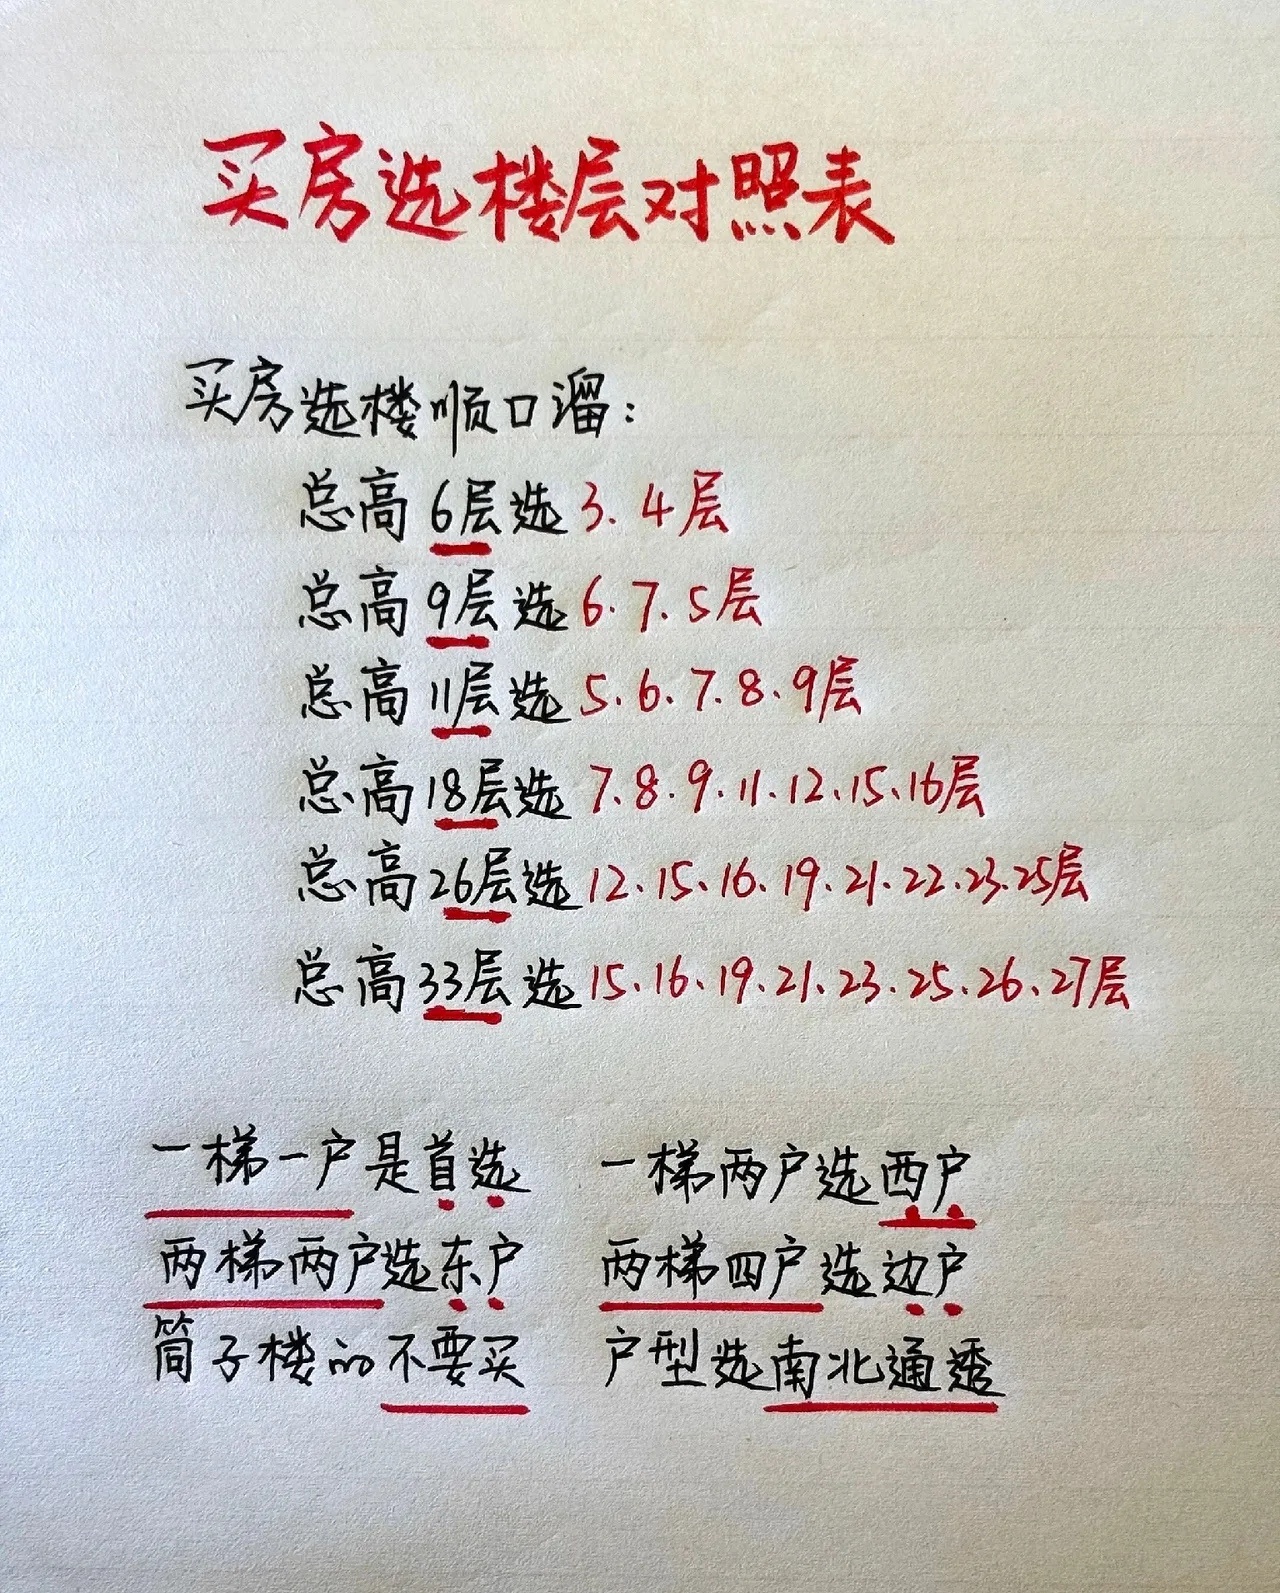 买房选楼层对照表
买房选楼顺口溜：
总高6层选3.4层
总高9层选6.7.5层
总高11层选5.6.7.8.9层
总高18层选7.8.9.11.12.15.16层
总高26层选12.15.16.19.21.22.23.25层
总高33层选15.16.19.21.23.25.26.27层
一梯一户是首选 一梯两户选西户
两梯两户选东户 两梯四户选边户
筒子楼的不要买 户型选南北通透